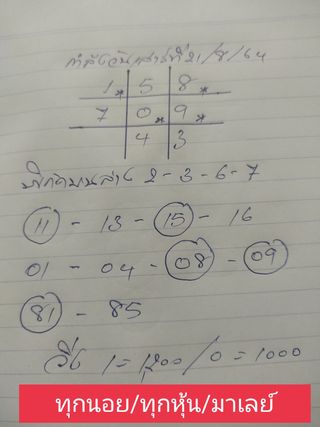 กำลังวันเสาร์ที่ 21/8/64
1* 5 8*
7 0* 9*
4 3
บนล่าง 2-3-6-7
11 - 13 - 15 - 16
01 - 04 - 08 - 09
81 - 85
วิ่ง 1=1200/0=1000
ทุกนอย/ทุกหุ้น/มาเลย์